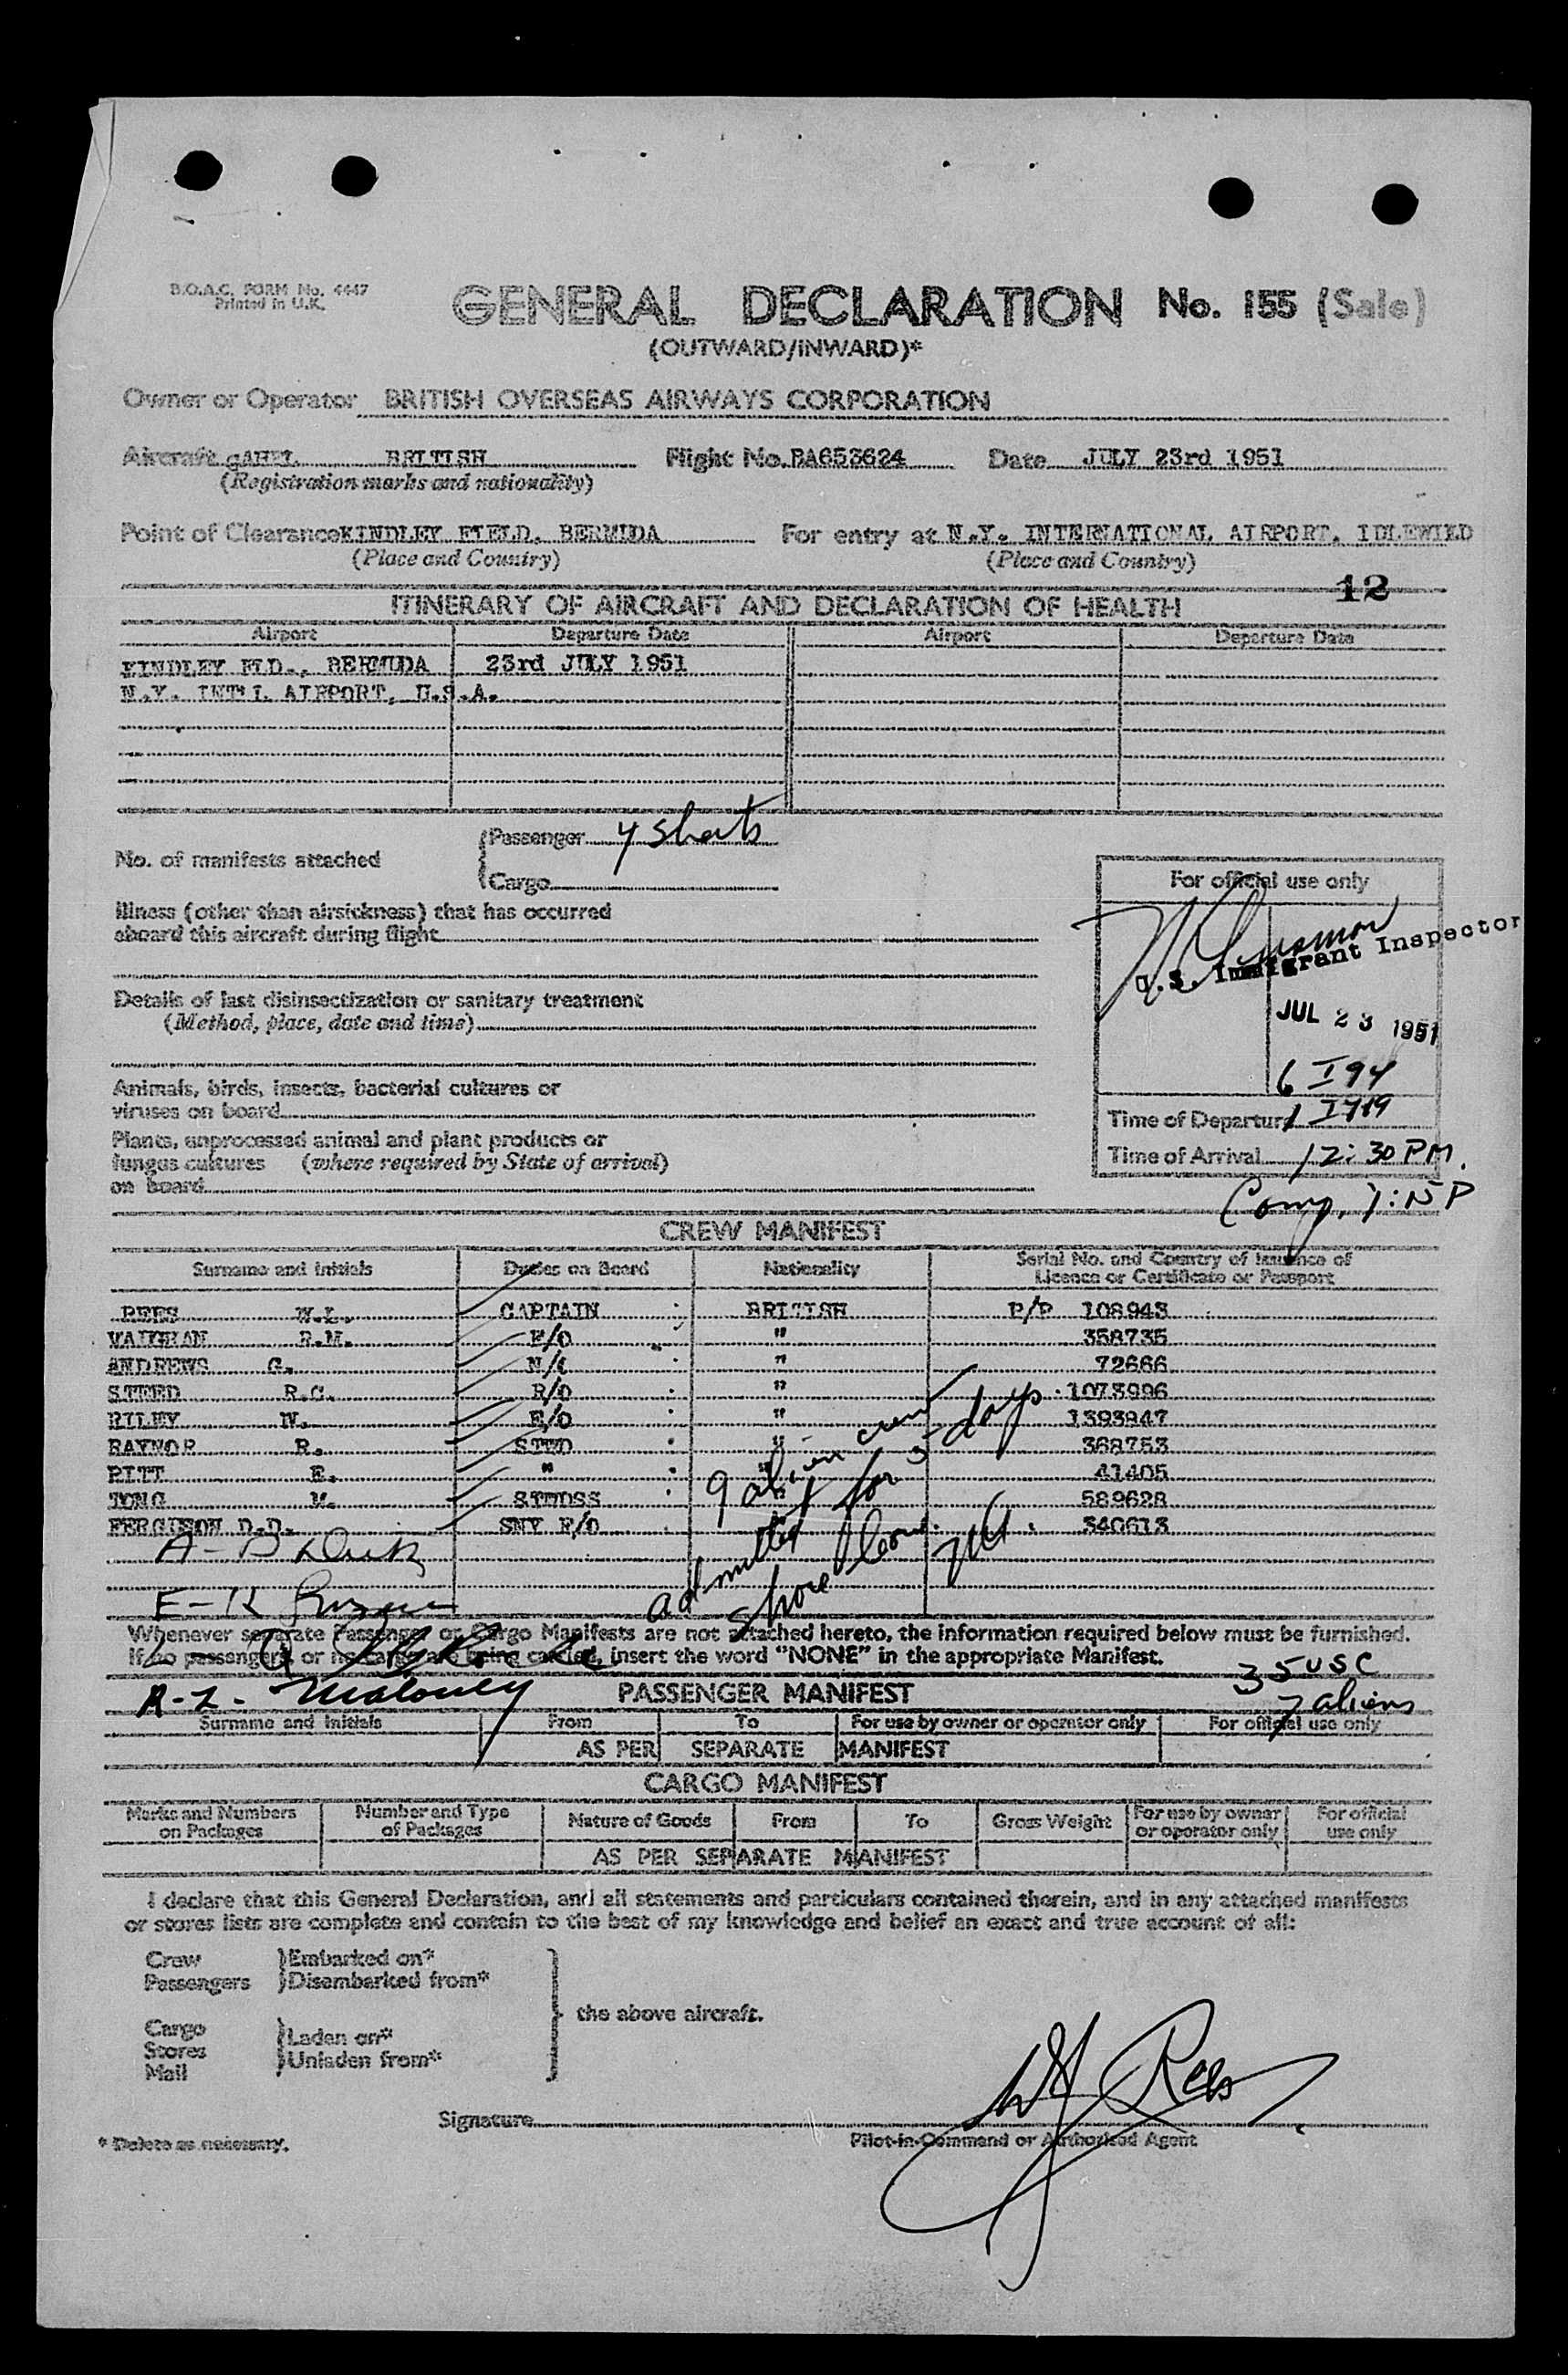 B.O.A.C. FORM No. 4447
Printed in U.K.
GENERAL DECLARATION No. 155 (Sale)
(OUTWARD/INWARD)*
Owner or Operator BRITISH OVERSEAS AIRWAYS CORPORATION
Aircraft BRITISH Flight No. BA653624 Date JULY 23rd 1951
(Registration marks and nationality)
Point of Clearance KINDLEY FIELD, BERMUDA For entry at N.Y. INTERNATIONAL AIRPORT, IDLEWILD
(Place and Country) (Place and Country)
12
ITINERARY OF AIRCRAFT AND DECLARATION OF HEALTH
Airport Departure Date Airport Departure Date
KINDLEY FLD., BERMUDA 23rd JULY 1951
N.Y. INT'L AIRPORT, U.S.A.
No. of manifests attached
Passenger 4 sheets
Cargo
For official use only
Illness (other than airsickness) that has occurred
aboard this aircraft during flight
U.S. Immigrant Inspector
Details of last disinsectization or sanitary treatment
(Method, place, date and time)
JUL 23 1951
6 I 94
Animals, birds, insects, bacterial cultures or
viruses on board
Time of Departure 1 I 419
Plants, unprocessed animal and plant products or
fungus cultures (where required by State of arrival)
on board
Time of Arrival 12:30 PM.
Comp. 1:15 P
CREW MANIFEST
Surname and Initials Duties on Board Nationality Serial No. and Country of Issuance of
Licence or Certificate or Passport
REES W.L. CAPTAIN BRITISH P/P 108943
VAUGHAN R.M. F/O " 358735
ANDREWS G. N/O " 72666
STEED R.C. R/O " 1073996
RILEY W. E/O " 1393947
RAYNOR R. STWD " 368753
PITT E. " " 41405
TONG M. STWDSS " 589628
FERGUSON D.D. SNY F/O " 340613
9 alien crew
admitted for 5 days
shore leave.
A - B
E - K
L - Q
R-Z - Maloney
Whenever separate Passenger or Cargo Manifests are not attached hereto, the information required below must be furnished.
If no passengers or no cargo are being carried, insert the word "NONE" in the appropriate Manifest.
35 USC
7 aliens
PASSENGER MANIFEST
Surname and Initials From To For use by owner or operator only For official use only
AS PER SEPARATE MANIFEST
CARGO MANIFEST
Marks and Numbers on Packages Number and Type of Packages Nature of Goods From To Gross Weight For use by owner or operator only For official use only
AS PER SEPARATE MANIFEST
I declare that this General Declaration, and all statements and particulars contained therein, and in any attached manifests
or stores lists are complete and contain to the best of my knowledge and belief an exact and true account of all:
Crew Embarked on*
Passengers Disembarked from*
the above aircraft.
Cargo Laden on*
Stores Unladen from*
Mail
Signature W L Rees
* Delete as necessary. Pilot-in-Command or Authorised Agent